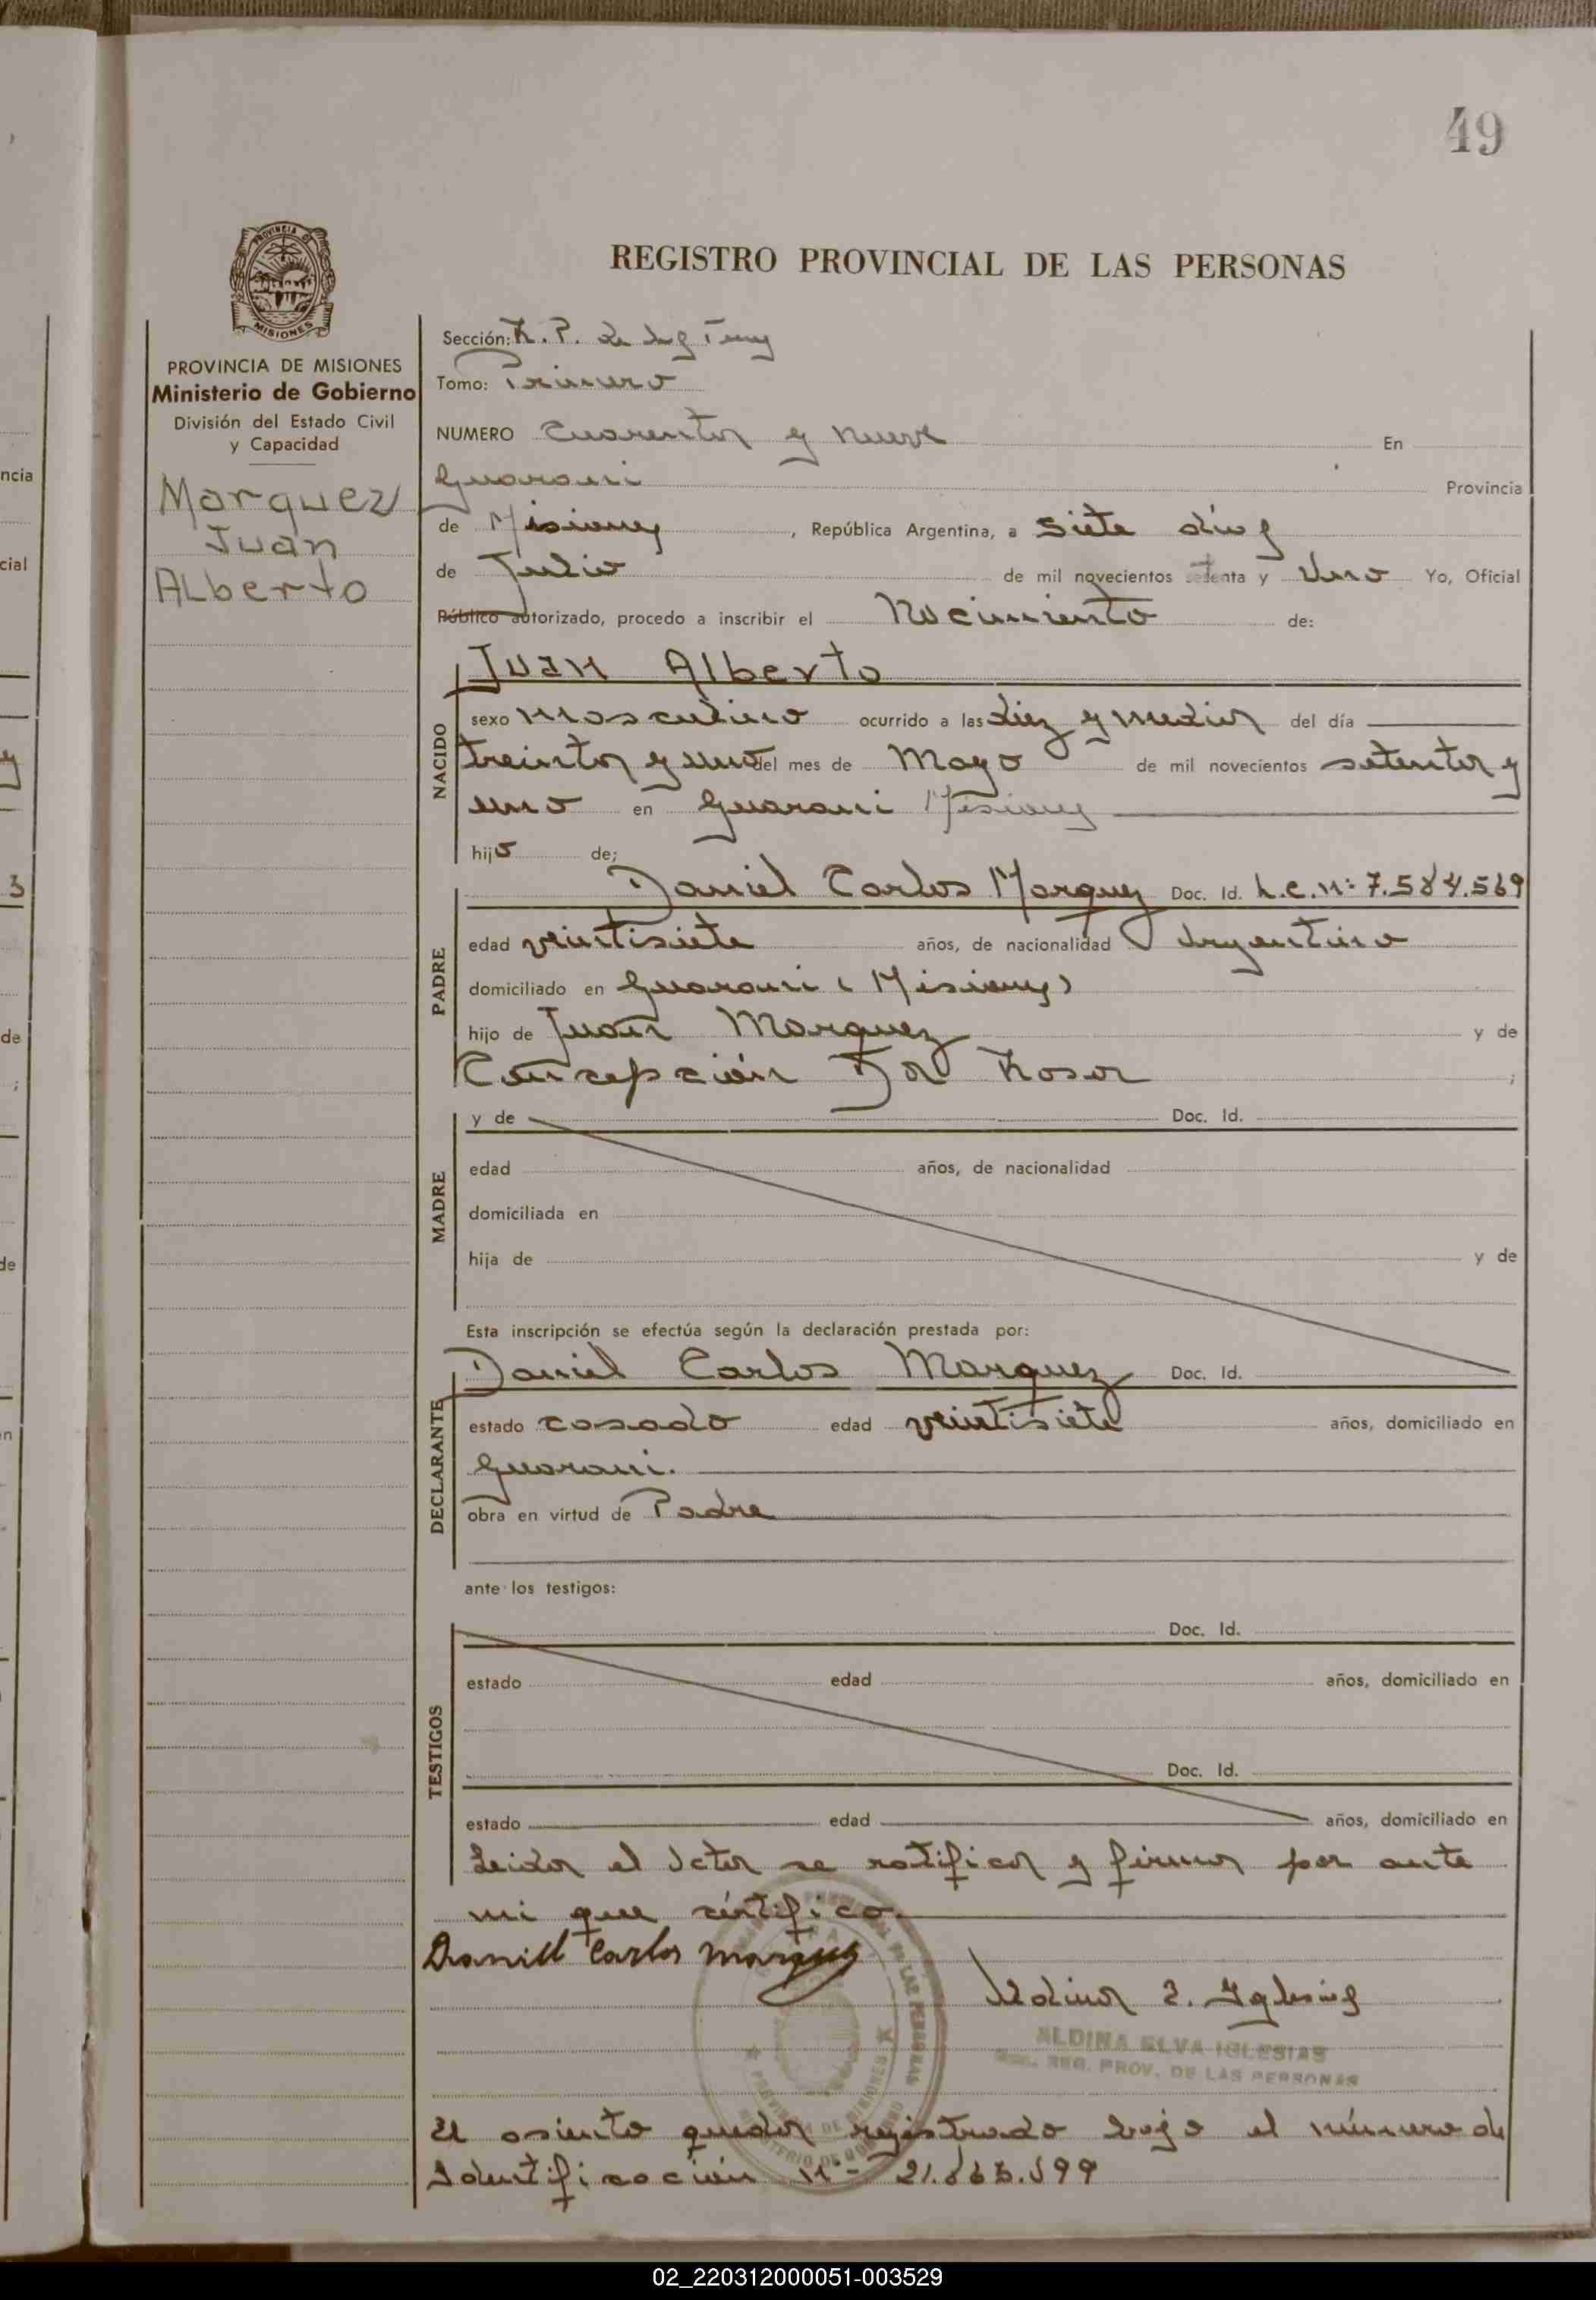 49
REGISTRO PROVINCIAL DE LAS PERSONAS
PROVINCIA DE
MISIONES
PROVINCIA DE MISIONES
Ministerio de Gobierno
División del Estado Civil
y Capacidad
Marquez
Juan
Alberto
Sección: R. P. de
Tomo: Primero
NUMERO Cuarenta y nueve En
Guarani Provincia
de Misiones, República Argentina, a siete días
de Julio de mil novecientos setenta y Uno Yo, Oficial
Público autorizado, procedo a inscribir el Nacimiento de:
Juan Alberto
NACIDO
sexo masculino ocurrido a las diez y media del día
treinta y uno del mes de Mayo de mil novecientos setenta y
uno en Guarani Misiones
hijo de;
Daniel Carlos Marquez Doc. Id. L.E. Nº 7.584.569
PADRE
edad veintisiete años, de nacionalidad Argentino
domiciliado en Guarani (Misiones)
hijo de Juan Marquez y de
Concepción Da Rosa ;
MADRE
y de Doc. Id.
edad años, de nacionalidad
domiciliada en
hija de y de
Esta inscripción se efectúa según la declaración prestada por:
Daniel Carlos Marquez Doc. Id.
DECLARANTE
estado casado edad veintisiete años, domiciliado en
Guarani.
obra en virtud de Padre
ante los testigos:
TESTIGOS
Doc. Id.
estado edad años, domiciliado en
Doc. Id.
estado edad años, domiciliado en
Leida el Acta se ratifica y firma por ante
mi que certifico.
Daniel Carlos Marquez
Aldina E. Iglesias
ALDINA ELVA IGLESIAS
REG. PROV. DE LAS PERSONAS
El asiento queda registrado bajo el número de
Identificación Nº
02_220312000051-003529